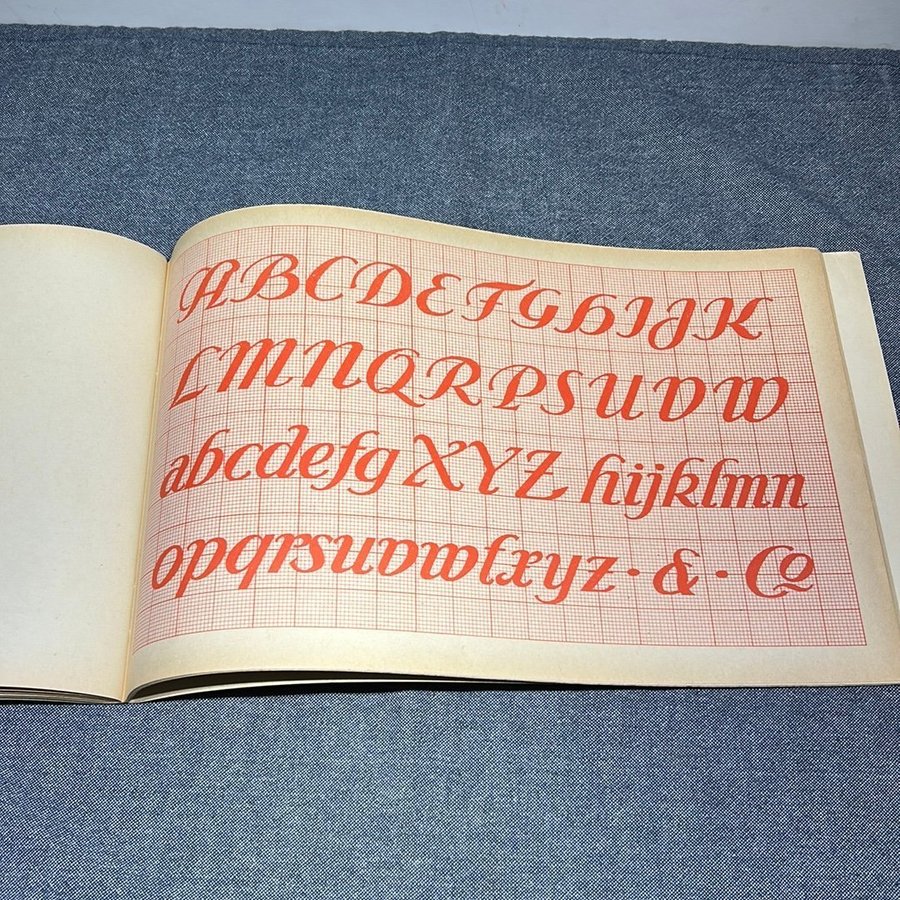 ABCDEFGHIJK
LMNNQRPSUVW
abcdefgXYZ hijklmn
opqrsuvwtxyz·&·Co